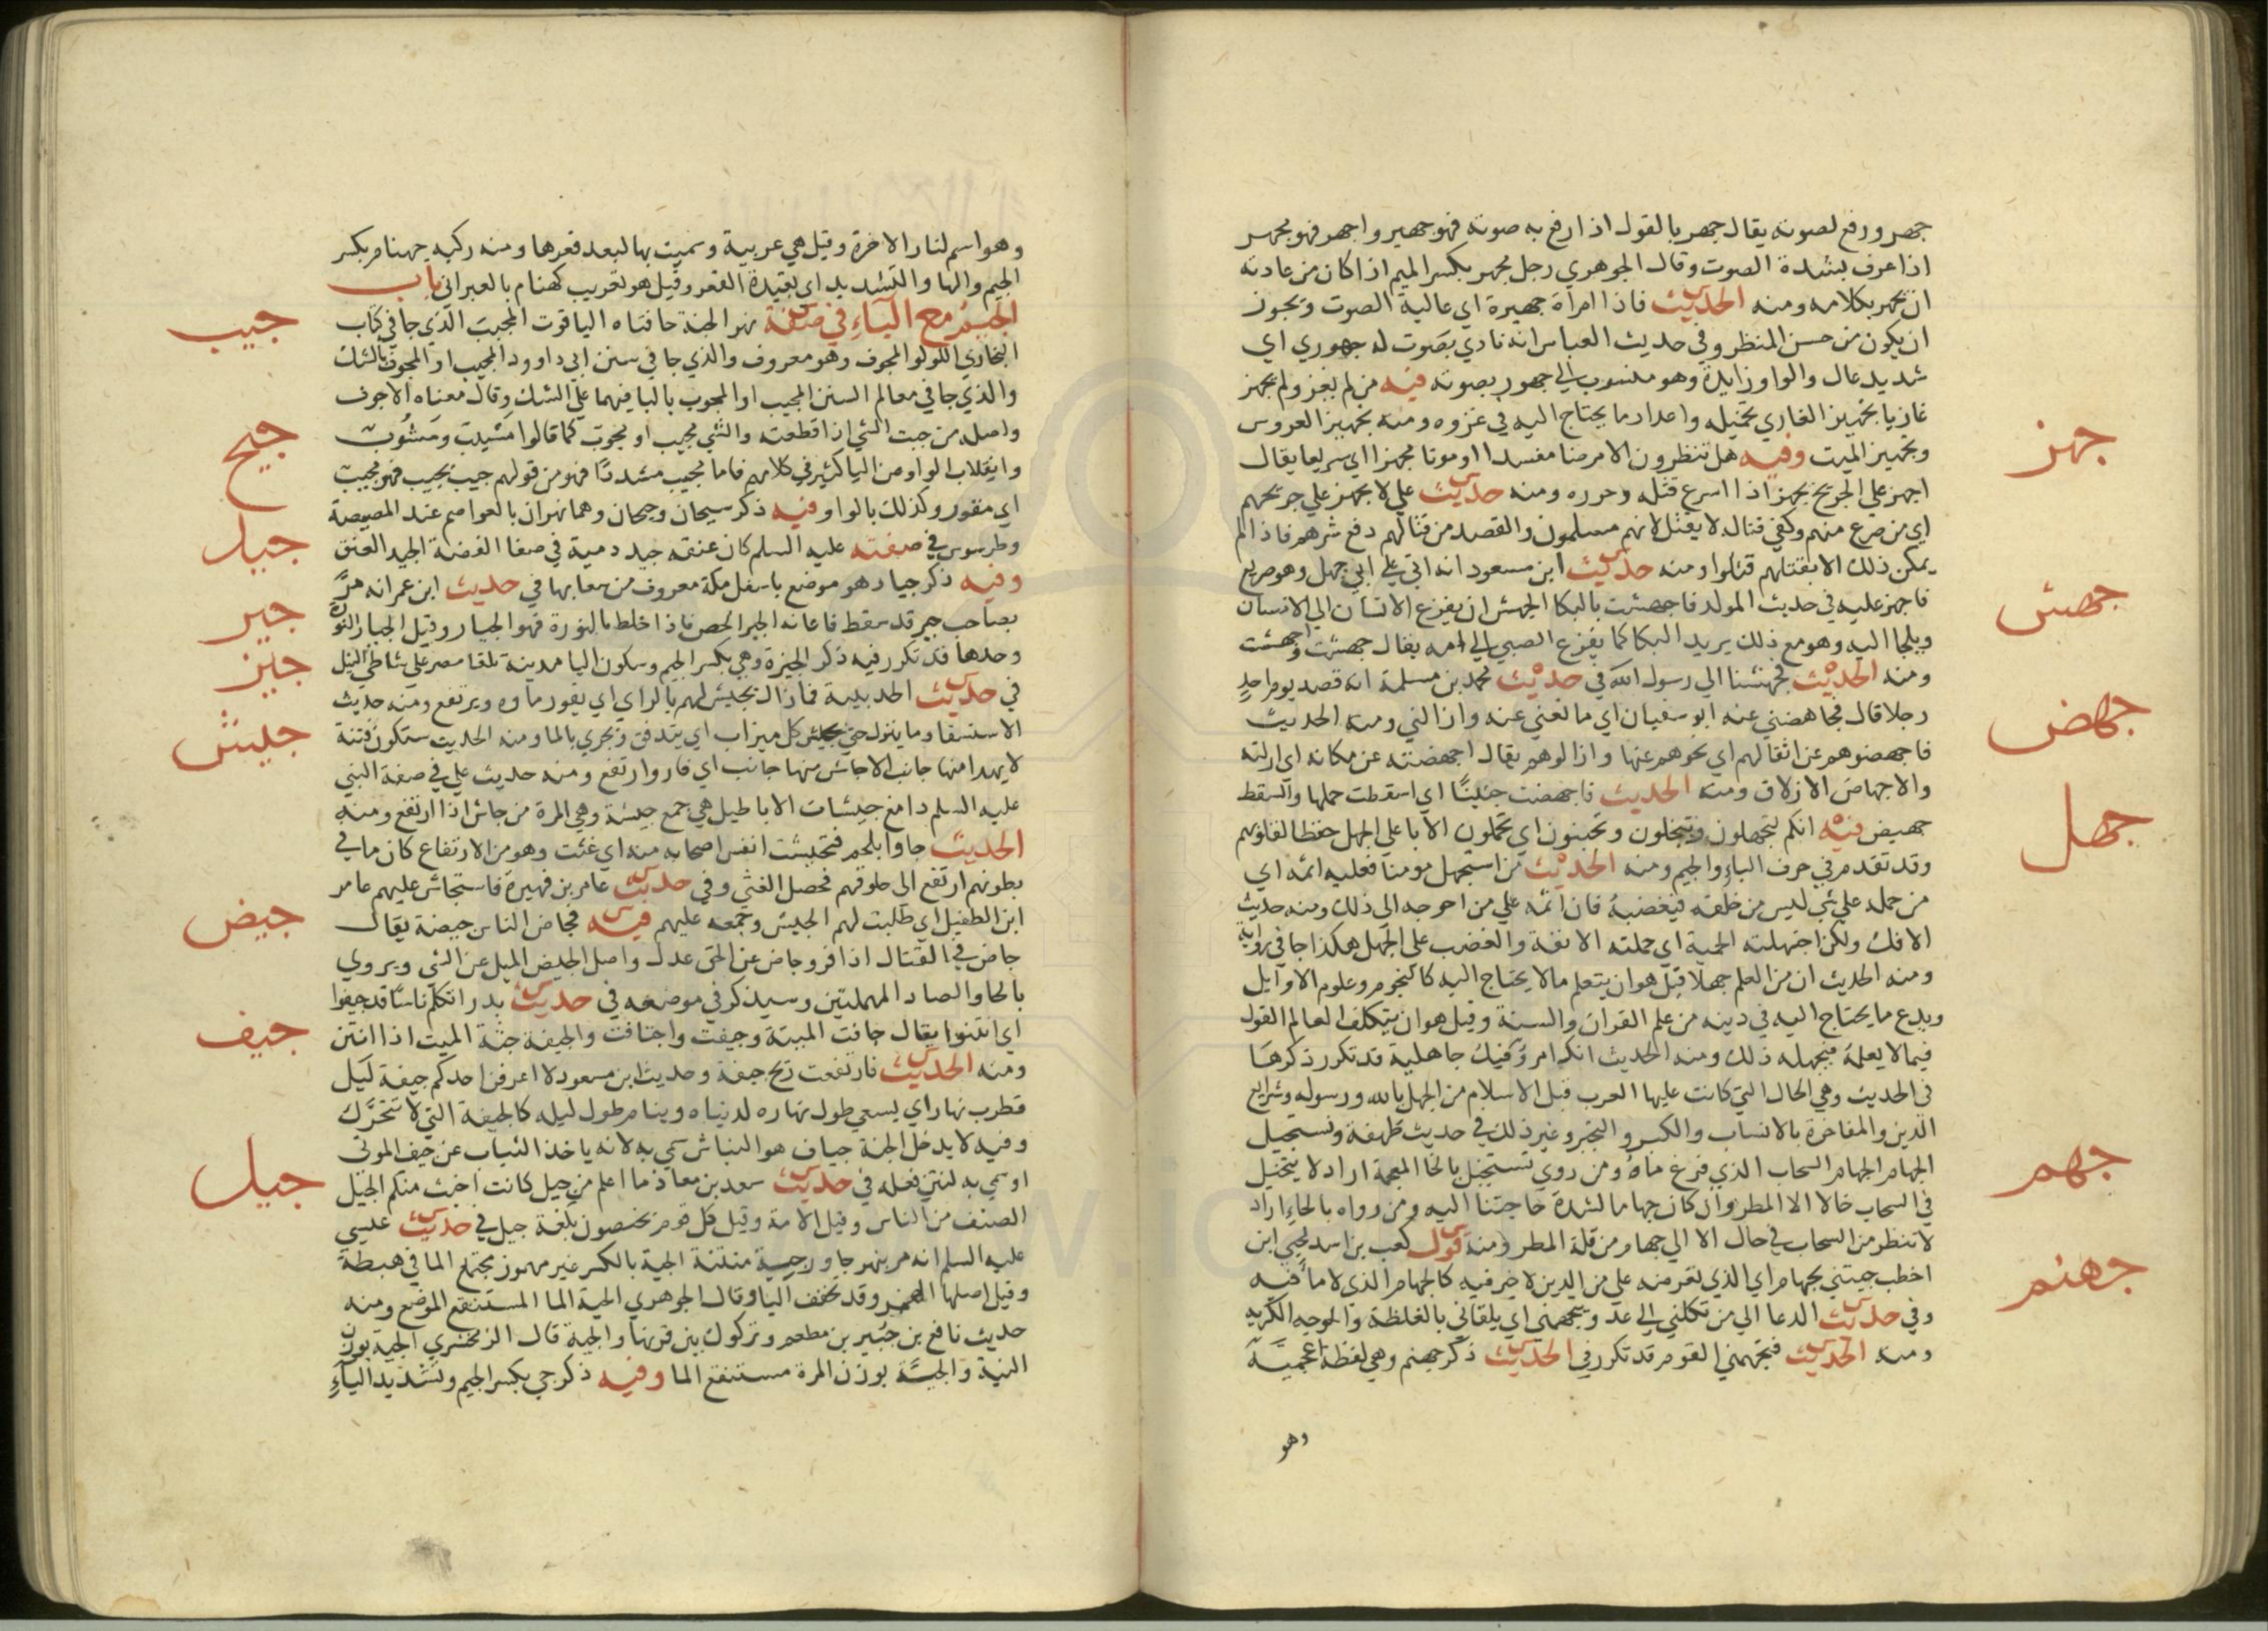 جهر ورفع لصوته يقال جهر بالقول اذا رفع به صوته فهو جهير واجهر فهو مجهر
اذا عرف بشدة الصوت وقال الجوهري رجل مجهر بكسر الميم اذا كان من عادته
ان يجهر بكلامه ومنه الحديث فاذا امراة جهيرة اي عالية الصوت ويجوز
ان يكون من حسن المنظر وفي حديث العباس انه نادي بصوت له جهوري اي
شديد عال والواو زايدة وهو منسوب الي جهور بصوته فيه من لم يغز ولم يجهز
جهز
غازيا تجهيز الغازي تحميله واعداد ما يحتاج اليه في غزوه ومنه تجهيز العروس
وتجهيز الميت وفيه هل تنظرون الا مرضا مفسدا او موتا مجهزا اي سريعا يقال
اجهز علي الجريح يجهز اذا اسرع قتله وحرره ومنه حديث علي لا يجهز علي جريحهم
اي من صرع منهم وكفي قتاله لا يقتل لانهم مسلمون والقصد من قتالهم دفع شرهم فاذا لم
يمكن ذلك الا بقتلهم قتلوا ومنه حديث ابن مسعود انه اتي علي ابي جهل وهو صريع
جهش
فاجهز عليه في حديث المولد فاجهشت بالبكا الجهش ان يفزع الانسان الي الانسان
ويلجا اليه وهو مع ذلك يريد البكا كما يفزع الصبي الي امه يقال جهشت واجهشت
ومنه الحديث فجهشنا الي رسول الله في حديث محمد بن مسلمة انه قصد يوم احد
جهض
رجلا قال فجاهضني عنه ابو سفيان اي مانعني عنه وازالني ومنه الحديث
فاجهضوهم عن اثقالهم اي نحوهم عنها وازالوهم يقال اجهضته عن مكانه اي ازلته
والاجهاض الازلاق ومنه الحديث فاجهضت جنينا اي اسقطت حملها والسقط
جهل
جهيض فيه انكم لتجهلون وتبخلون وتجبنون اي تحملون الابا علي الجهل حفظا لقلوبهم
وقد تقدم في حرف الباء والجيم ومنه الحديث من استجهل مومنا فعليه اثمه اي
من حمله علي شي ليس من خلقه فيغضبه فان اثمه علي من احوجه الي ذلك ومنه حديث
الافك ولكن اجتهلته الحمية اي حملته الانفة والغضب علي الجهل هكذا جا في رواية
ومنه الحديث ان من العلم جهلا قيل هو ان يتعلم ما لا يحتاج اليه كالنجوم وعلوم الاوايل
ويدع ما يحتاج اليه في دينه من علم القران والسنة وقيل هو ان يتكلف العالم القول
فيما لا يعلمه فيجهله ذلك ومنه الحديث انك امرؤ فيك جاهلية قد تكرر ذكرها
في الحديث وهي الحال التي كانت عليها العرب قبل الاسلام من الجهل بالله ورسوله وشرايع
الدين والمفاخرة بالانساب والكبر والتجبر وغير ذلك في حديث طهفة ونستحيل
جهم
الجهام الجهام السحاب الذي فرغ ماؤه ومن روي نستخيل بالخا المعجمة اراد لا نتخيل
في السحاب خالا الا المطر وان كان جهاما لشدة حاجتنا اليه ومن رواه بالحاء اراد
لا ننظر من السحاب في حال الا الي جهام من قلة المطر ومنه قول كعب بن اسد لحيي ابن
اخطب جيتني بجهام اي الذي تعرضه علي من الدين لا خير فيه كالجهام الذي لا ماء فيه
جهنم
وفي حديث الدعا الي من تكلني الي عدو يتجهمني اي يلقاني بالغلظة والوجه الكريه
ومنه الحديث فتجهمني القوم قد تكرر في الحديث ذكر جهنم وهي لفظة اعجمية
وهو
وهو اسم لنار الاخرة وقيل هي عربية وسميت بها لبعد قعرها ومنه ركية جهنام بكسر
الجيم والها والتشديد اي بعيدة القعر وقيل هو تعريب كهنام بالعبراني باب
جيب
الجيم مع الياء في صفة نهر الجنة حافتاه الياقوت المجيب الذي جا في كتاب
البخاري اللولو المجوف وهو معروف والذي جا في سنن ابي داوود المجيب او المجوف بالشك
والذي جا في معالم السنن المجيب او المجوب بالبا فيهما علي الشك وقال معناه الاجوف
واصله من جبت الشي اذا قطعته والشي مجيب او مجوب كما قالوا مشيب ومشوب
جيح
وانقلاب الواو من اليا كثير في كلامهم فاما مجيب مشددا فهو من قولهم جيب يجيب فهو مجيب
اي مقور وكذلك بالواو وفيه ذكر سيحان وجيحان وهما نهران بالعواصم عند المصيصة
جيد
وطرسوس في صفته عليه السلم كان عنقه جيد دمية في صفا الفضة الجيد العنق
وفيه ذكر جياد هو موضع باسفل مكة معروف من شعابها في حديث ابن عمر انه مر
جير
بصاحب جير قد سقط فاعانه الجير الجص فاذا خلط بالنورة فهو الجيار وقيل الجيار النورة
جيز
وحدها قد تكرر فيه ذكر الجيزة وهي بكسر الجيم وسكون اليا مدينة تلقا مصر علي شاطي النيل
في حديث الحديبية فما زال يجيش لهم بالراي اي يفور ماوه ويرتفع ومنه حديث
جيش
الاستسقا وما ينزل حتي يجيش كل ميزاب اي يتدفق ويجري بالما ومنه الحديث ستكون فتنة
لا يهدا منها جانب الا جاش منها جانب اي فار وارتفع ومنه حديث علي في صفة النبي
عليه السلم دامغ جيشات الاباطيل هي جمع جيشة وهي المرة من جاش اذا ارتفع ومنه
الحديث جاوا بلحم فتجيشت انفس اصحابه منه اي غثت وهو من الارتفاع كان ما في
بطونهم ارتفع الي حلوقهم فحصل الغثي وفي حديث عامر بن فهيرة فاستجاش عليهم عامر
جيض
ابن الطفيل اي طلبت لهم الجيش وجمعه عليهم فيه فجاض الناس جيضة يقال
جاض في القتال اذا فر وجاض عن الحق عدل واصل الجيض الميل عن الشي ويروي
بالحا والصاد المهملتين وسيذكر في موضعه في حديث بدر اتكلم ناسا قد جيفوا
جيف
اي انتنوا يقال جافت الميتة وجيفت واجتافت والجيفة جثة الميت اذا انتن
ومنه الحديث فارتفعت ريح جيفة وحديث ابن مسعود لا اعرفن احدكم جيفة ليل
قطرب نهار اي يسعي طول نهاره لدنياه وينام طول ليله كالجيفة التي لا تتحرك
وفيه لا يدخل الجنة جياف هو النباش سمي به لانه ياخذ الثياب عن جيف الموتي
جيل
او سمي به لنتن فعله في حديث سعد بن معاذ ما اعلم من جيل كانت اخبث منكم الجيل
الصنف من الناس وقيل الامة وقيل كل قوم يختصون بلغة جيل في حديث عيسي
عليه السلم انه مر بنهر جاور جية منتنة الجية بالكسر غير مهموز مجتمع الما في هبطة
وقيل اصلها الهمز وقد تخفف اليا وقال الجوهري الجية الما المستنقع الموضع ومنه
حديث نافع بن جبير بن مطعم وتركوك بين قرنها والجية قال الزمخشري الجية بوزن
النية والجية بوزن المرة مستنقع الما وفيه ذكر جي بكسر الجيم وتشديد الياء